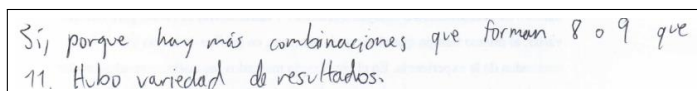 Sí, porque hay más combinaciones que forman 8 o 9 que
11. Hubo variedad de resultados.